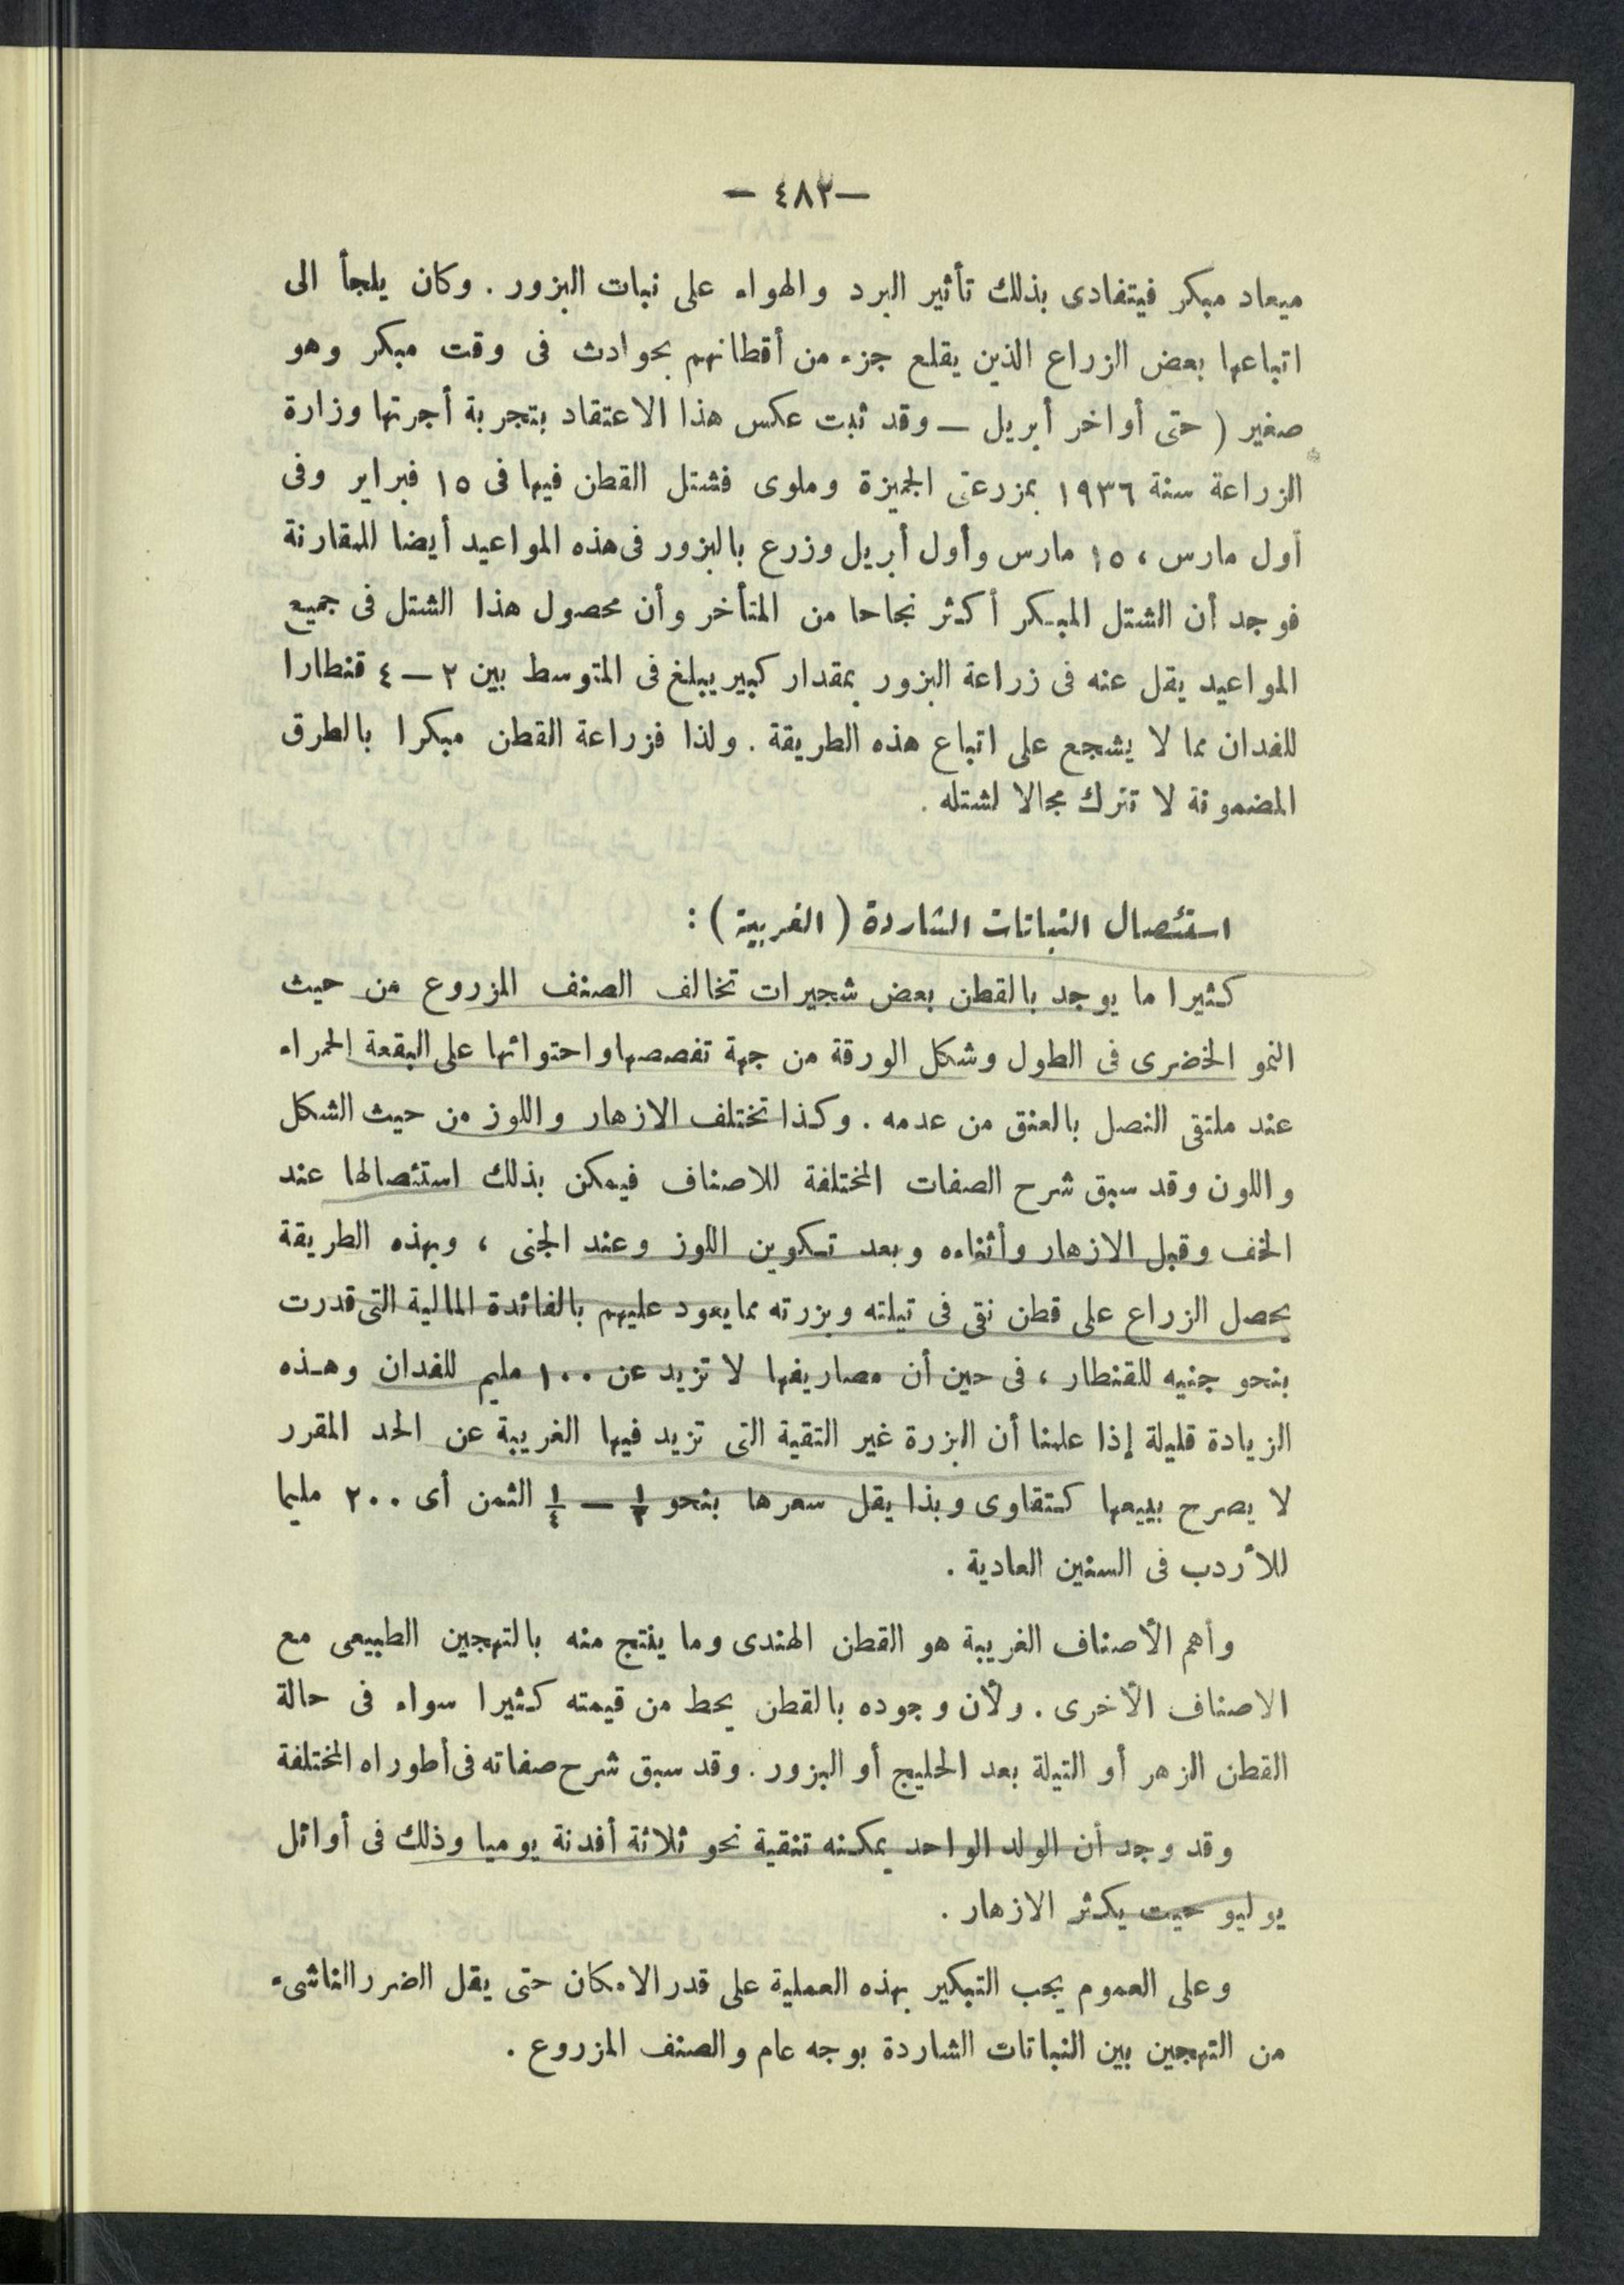 — ٤٨٢ —
ميعاد مبكر فيتفادى بذلك تأثير البرد والهواء على نبات البزور . وكان يلجأ الى
اتباعها بعض الزراع الذين يقلع جزء من أقطانهم بحوادث فى وقت مبكر وهو
صغير ( حتى أواخر أبريل — وقد ثبت عكس هذا الاعتقاد بتجربة أجرتها وزارة
الزراعة سنة ١٩٣٦ بمزرعتى الجميزة وملوى فشتل القطن فيها فى ١٥ فبراير وفى
أول مارس ، ١٥ مارس وأول أبريل وزرع بالبزور فى هذه المواعيد أيضا للمقارنة
فوجد أن الشتل المبكر أكثر نجاحا من المتأخر وأن محصول هذا الشتل فى جميع
المواعيد يقل عنه فى زراعة البزور بمقدار كبير يبلغ فى المتوسط بين ٢ — ٤ قنطارا
للفدان مما لا يشجع على اتباع هذه الطريقة . ولذا فزراعة القطن مبكرا بالطرق
المضمونة لا تترك مجالا لشتله .
استئصال النباتات الشاردة ( الغريبة ) :
كثيرا ما يوجد بالقطن بعض شجيرات تخالف الصنف المزروع من حيث
النمو الخضرى فى الطول وشكل الورقة من جهة تفصصها واحتوائها على البقعة الحمراء
عند ملتقى النصل بالعنق من عدمه . وكذا تختلف الازهار واللوز من حيث الشكل
واللون وقد سبق شرح الصفات المختلفة للاصناف فيمكن بذلك استئصالها عند
الخف وقبل الازهار وأثناءه وبعد تكوين اللوز وعند الجنى ، وبهذه الطريقة
يحصل الزراع على قطن نقى فى تيلته وبزرته مما يعود عليهم بالفائدة المالية التى قدرت
بنحو جنيه للقنطار ، فى حين أن مصاريفها لا تزيد عن ١٠٠ مليم للفدان وهذه
الزيادة قليلة إذا علمنا أن البزرة غير التقية التى تزيد فيها الغريبة عن الحد المقرر
لا يصرح ببيعها كتقاوى وبذا يقل سعرها بنحو ١/٢ — ١/٤ الثمن أى ٢٠٠ مليما
للأردب فى السنين العادية .
وأهم الأصناف الغريبة هو القطن الهندى وما ينتج منه بالتهجين الطبيعى مع
الاصناف الأخرى . ولأن وجوده بالقطن يحط من قيمته كثيرا سواء فى حالة
القطن الزهر أو التيلة بعد الحليج أو البزور . وقد سبق شرح صفاته فى أطوراه المختلفة
وقد وجد أن الولد الواحد يمكنه تنقية نحو ثلاثة أفدنة يوميا وذلك فى أوائل
يوليو حيت يكثر الازهار .
وعلى العموم يجب التبكير بهذه العملية على قدر الامكان حتى يقل الضرر الناشىء
من التهجين بين النباتات الشاردة بوجه عام والصنف المزروع .